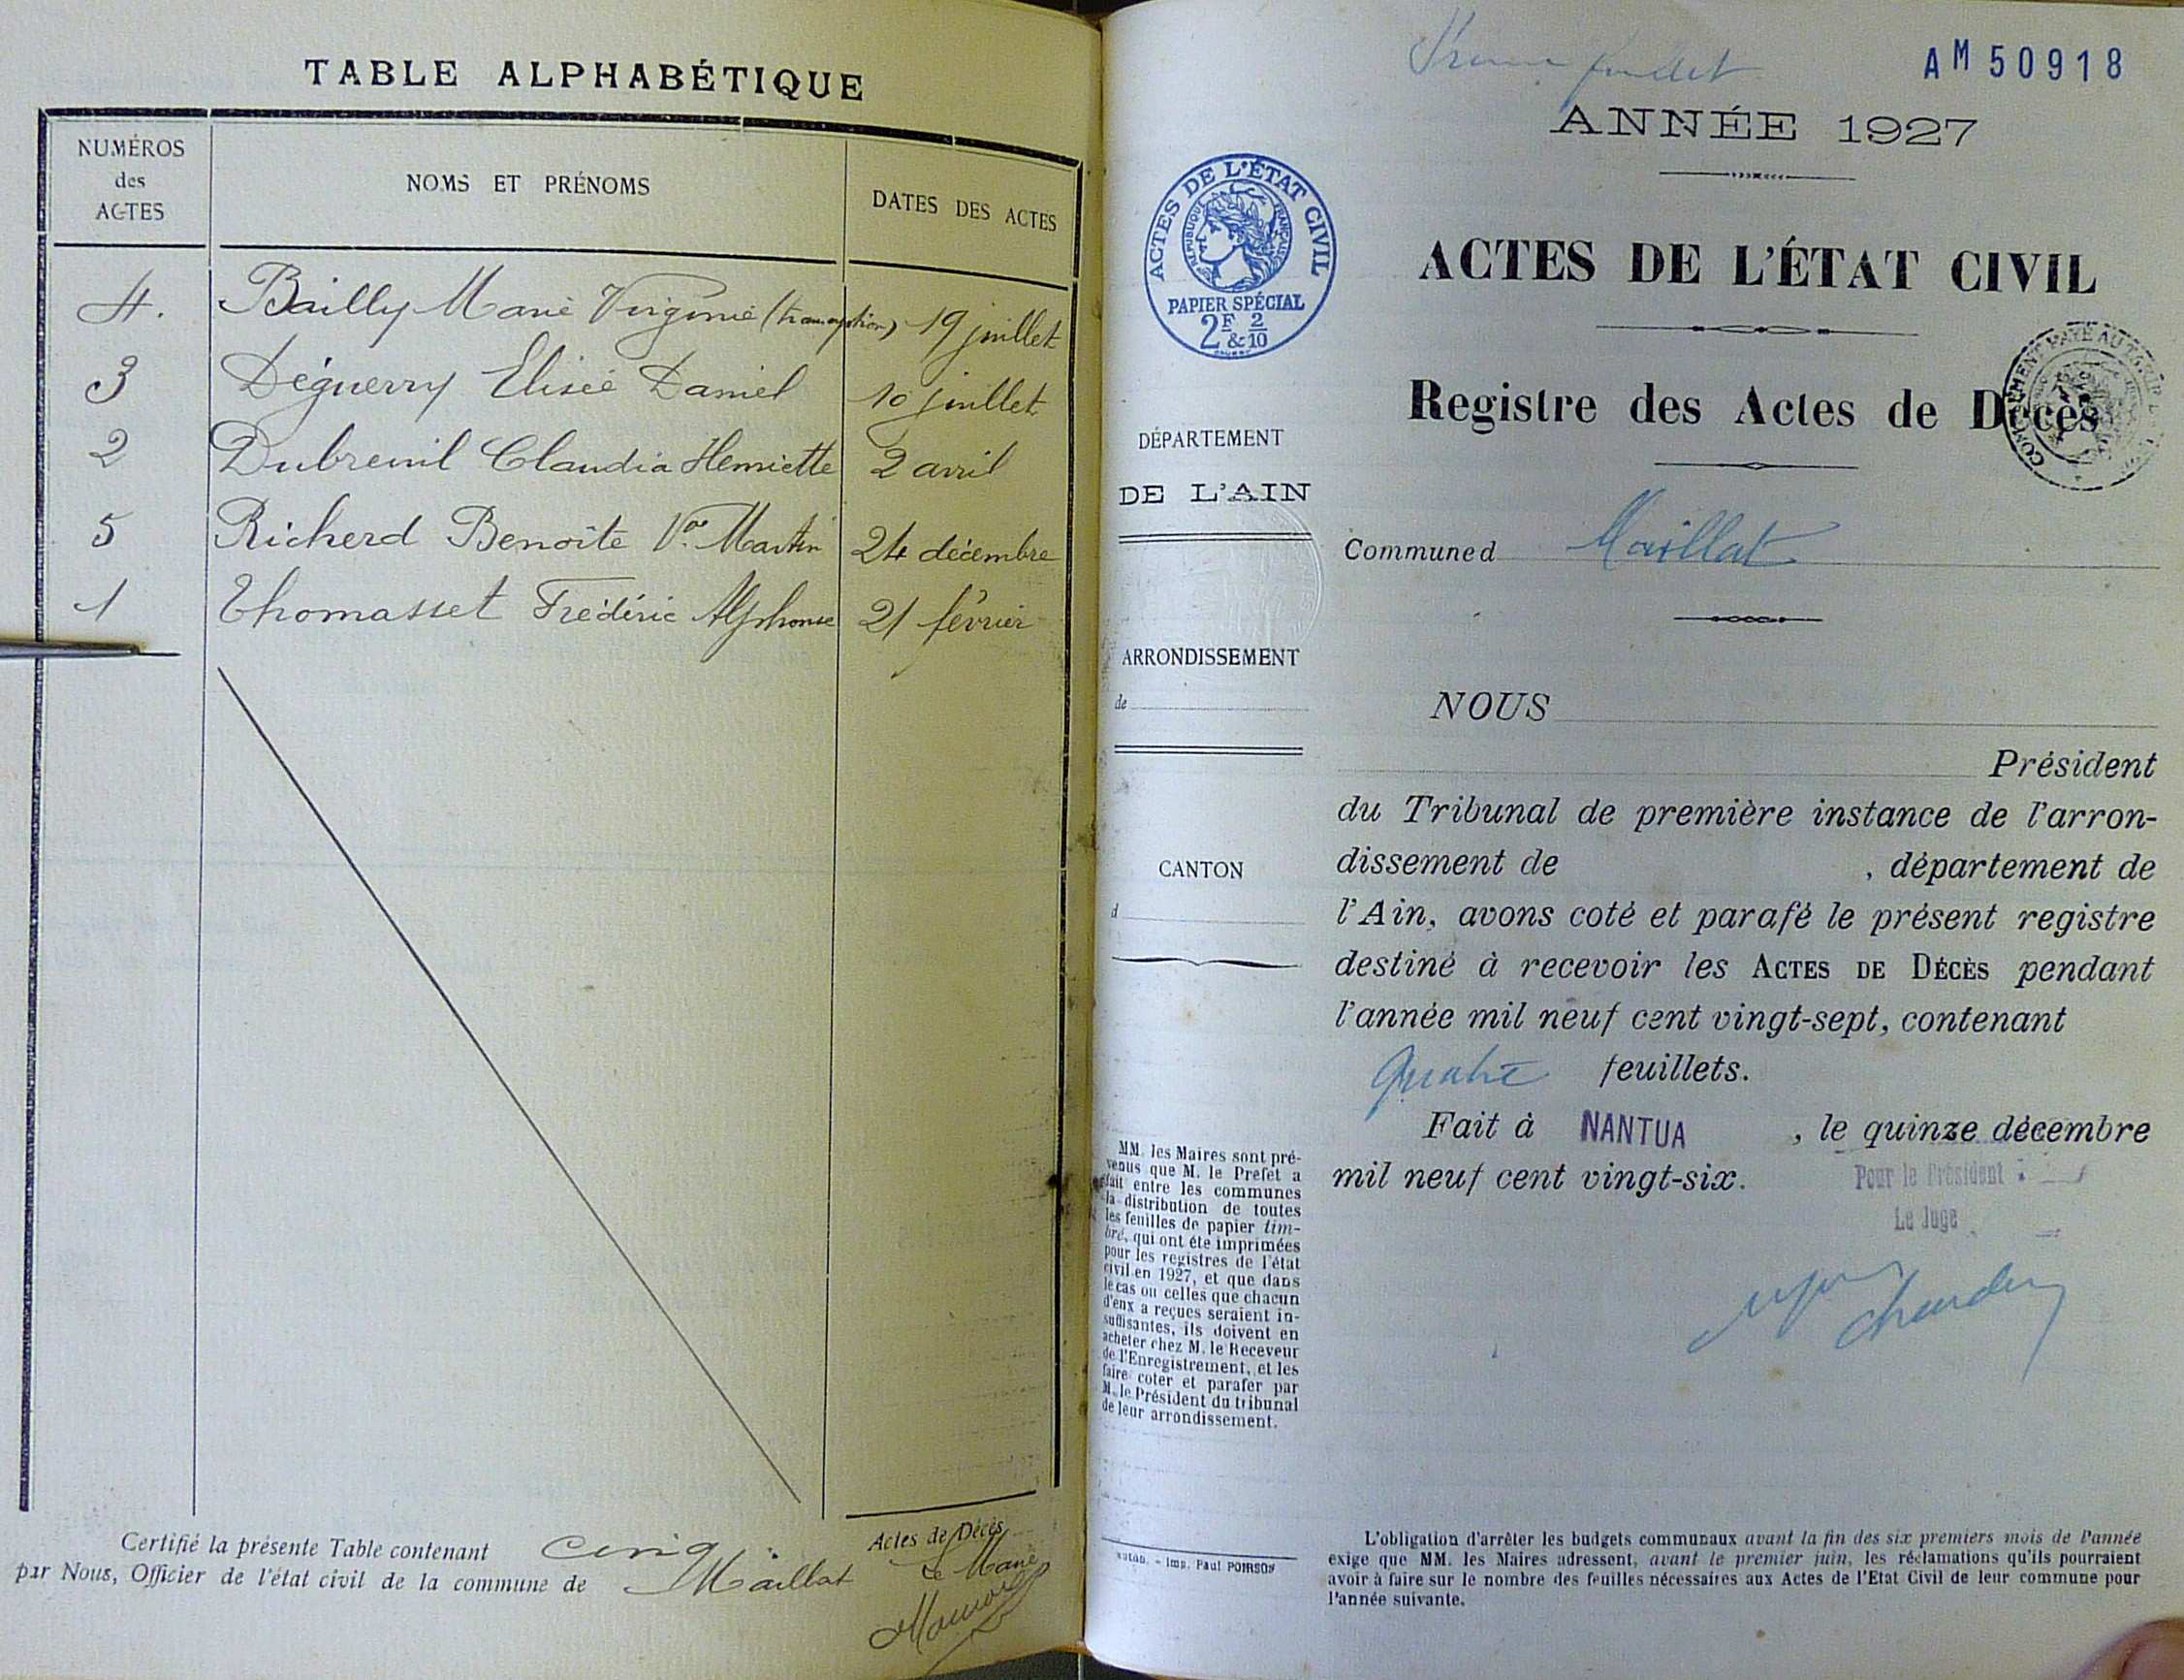 TABLE ALPHABÉTIQUE
NUMÉROS
des
ACTES
NOMS ET PRÉNOMS
DATES DES ACTES
4. Bailly Marie Virginie (transcription) 19 juillet
3 Déguerry Elisée Daniel 10 juillet
2 Dubreuil Claudia Henriette 2 avril
5 Richerd Benoîte Vve Martin 24 décembre
1 Thomasset Frédéric Alphonse 21 février
Certifié la présente Table contenant cinq Actes de Décès
par Nous, Officier de l'état civil de la commune de Maillat
Le Maire
AM 50918
ANNÉE 1927
ACTES DE L'ÉTAT CIVIL
RÉPUBLIQUE FRANÇAISE
PAPIER SPÉCIAL
2F & 2/10
ACTES DE L'ÉTAT CIVIL
Registre des Actes de Décès
DÉPARTEMENT
DE L'AIN
Commune d Maillat
ARRONDISSEMENT
de
NOUS
Président
du Tribunal de première instance de l'arron-
dissement de , département de
l'Ain, avons coté et parafé le présent registre
destiné à recevoir les ACTES DE DÉCÈS pendant
l'année mil neuf cent vingt-sept, contenant
quatre feuillets.
Fait à NANTUA , le quinze décembre
mil neuf cent vingt-six.
Pour le Président :
Le Juge
CANTON
d
MM. les Maires sont pré-
venus que M. le Préfet a
fait entre les communes
la distribution de toutes
les feuilles de papier tim-
bré, qui ont été imprimées
pour les registres de l'état
civil en 1927, et que dans
le cas où celles que chacun
d'eux a reçues seraient in-
suffisantes, ils doivent en
acheter chez M. le Receveur
de l'Enregistrement, et les
faire coter et parafer par
M. le Président du tribunal
de leur arrondissement.
Imp. Paul POIRSON
L'obligation d'arrêter les budgets communaux avant la fin des six premiers mois de l'année
exige que MM. les Maires adressent, avant le premier juin, les réclamations qu'ils pourraient
avoir à faire sur le nombre des feuilles nécessaires aux Actes de l'Etat Civil de leur commune pour
l'année suivante.